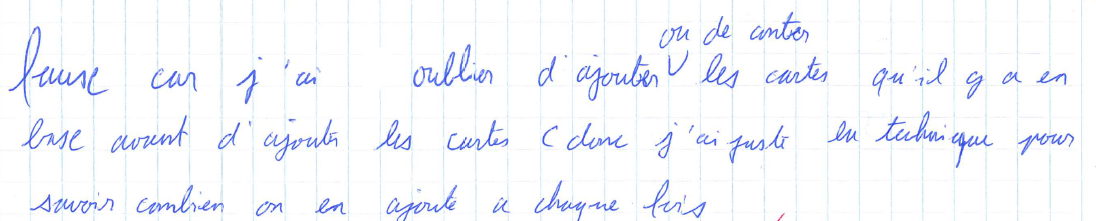 ou de conter
fause car j'ai oublier d'ajouter les cartes qu'il y a en
base avant d'ajouter les cartes (donc j'ai juste la technique pour
savoir combien on en ajoute a chaque fois